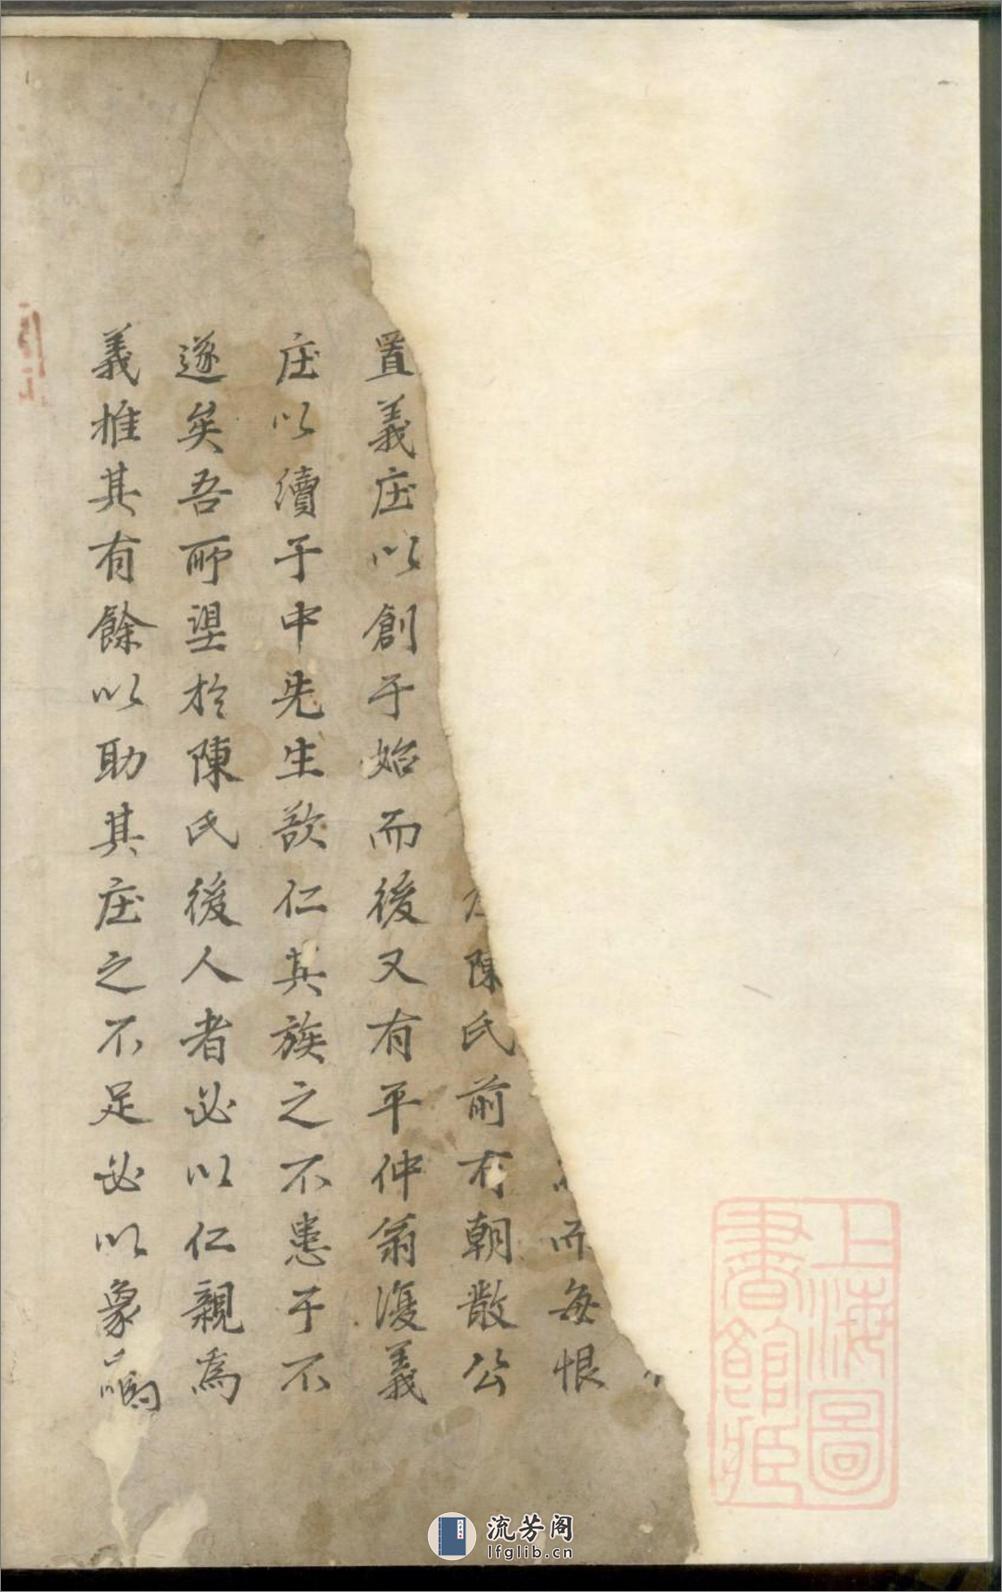 而每恨
陳氏前有朝散公
置義庄以創于始而後又有平仲翁復義
庄以續于中先生欲仁其族之不患于不
遂矣吾所望於陳氏後人者必以仁親為
義推其有餘以助其庄之不足必以象
上海圖書館藏
流芳阁
lfglib.cn